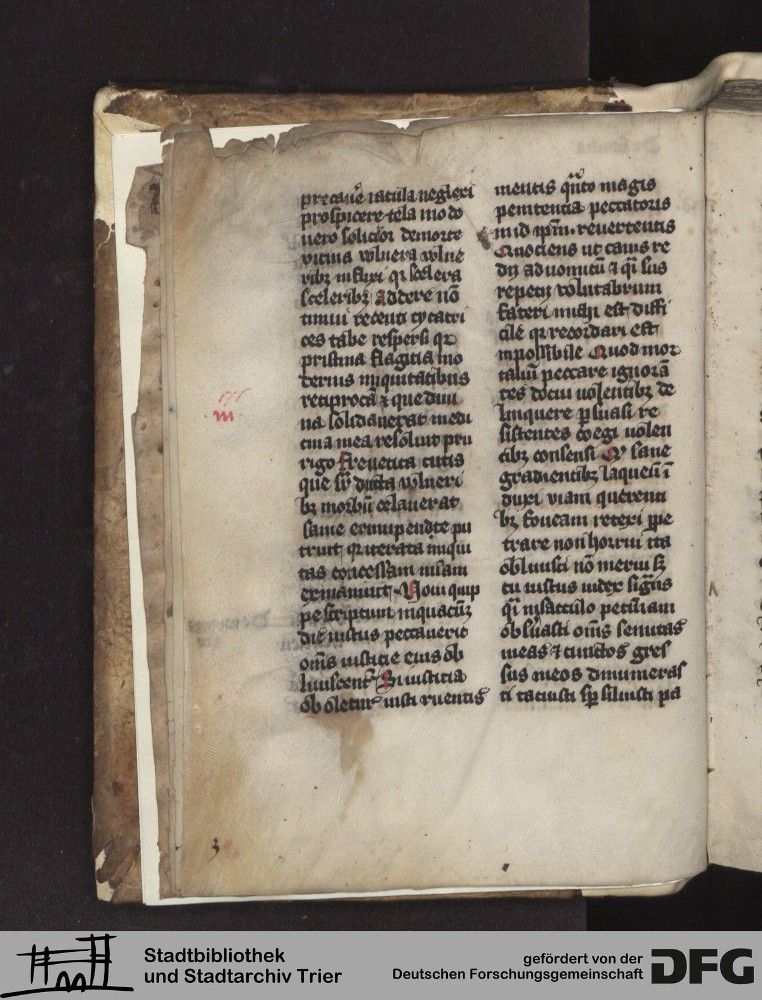 precaue iacula neglexi
prospicere tela modo
uero solicitor de morte
vicina vulnera vulne
ribꝫ inflixi qꝛ scelera
sceleribꝫ addere nō
timui recenti cycatri
ces tabe respersi qꝛ
pristina flagicia mo
dernis iniquitatibus
reciprocaui ⁊ que diui
na solidauerat medi
cina mea resoluit pru
rigo frenetica cutis
que sup ducta vulneri
bꝫ morbū celauerat
sanie erumpendte pu
truit qꝛ iterata iniqui
tas concessam misam
exinaniuit Noui quip
pe scriptum in quacūꝫ
die iustus peccauerit
oms iusticie eius ob
liuiscent Si iusticia
ob oletur iusti ruentis
mentis qnto magis
penitentia peccatoris
in id ipm reuertentis
Quociens ut canis re
dii ad uomitū ⁊ qi sus
repetii volutabrum
fateri michi est diffi
cile qꝛ recordari est
inpossibile Quod mor
talium peccare ignorā
tes docui uolentibꝫ de
linquere psuasi re
sistentes coegi uolen
tibꝫ consensi Q saue
gradientibꝫ laqueū ī
duxi viam querenti
bꝫ foueam retexi ppe
trare non horrui ita
obliuisci nō metui sꝫ
tu iustus iudex signas
qi in sacculo peccata m
obseruasti oms semitas
meas ⁊ cunctos gres
sus meos dinumeras
ti tacuisti sp siluisti pa
m
3
Stadtbibliothek
und Stadtarchiv Trier
gefördert von der
Deutschen Forschungsgemeinschaft
DFG